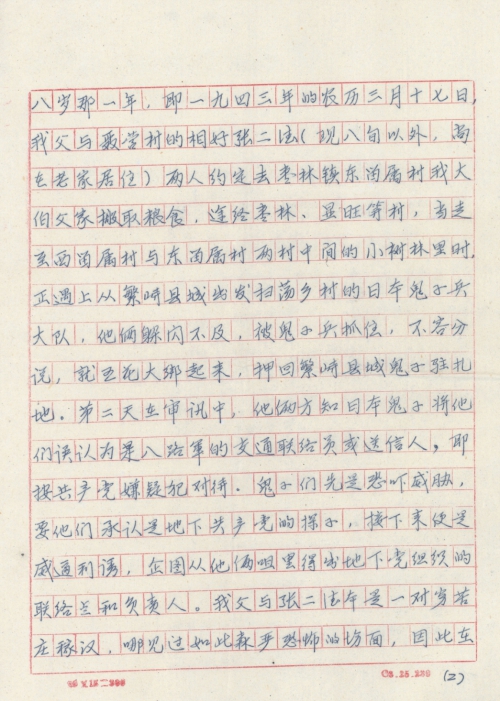 八岁那一年，即一九四三年的农历三月十七日，
我父与聂营村的相好张二法（现八旬以外，高
在老家居住）两人约定去枣林镇东留属村我大
伯父家搬取粮食，途经枣林、显旺等村，当走
至西留属村与东留属村两村中间的小树林里时，
正遇上从繁峙县城出发扫荡乡村的日本鬼子兵
大队，他俩躲闪不及，被鬼子兵抓住，不容分
说，就五花大绑起来，押回繁峙县城鬼子驻扎
地。第二天在审讯中，他俩方知日本鬼子将他
们误认为是八路军的交通联络员或送信人，即
按共产党嫌疑犯对待。鬼子们先是恐吓威胁，
要他们承认是地下共产党的探子，接下来便是
威逼利诱，企图从他俩咀里得出地下党组织的
联络点和负责人。我父与张二法本是一对穷苦
庄稼汉，哪见过如此森严恐怖的场面，因此在
(2)